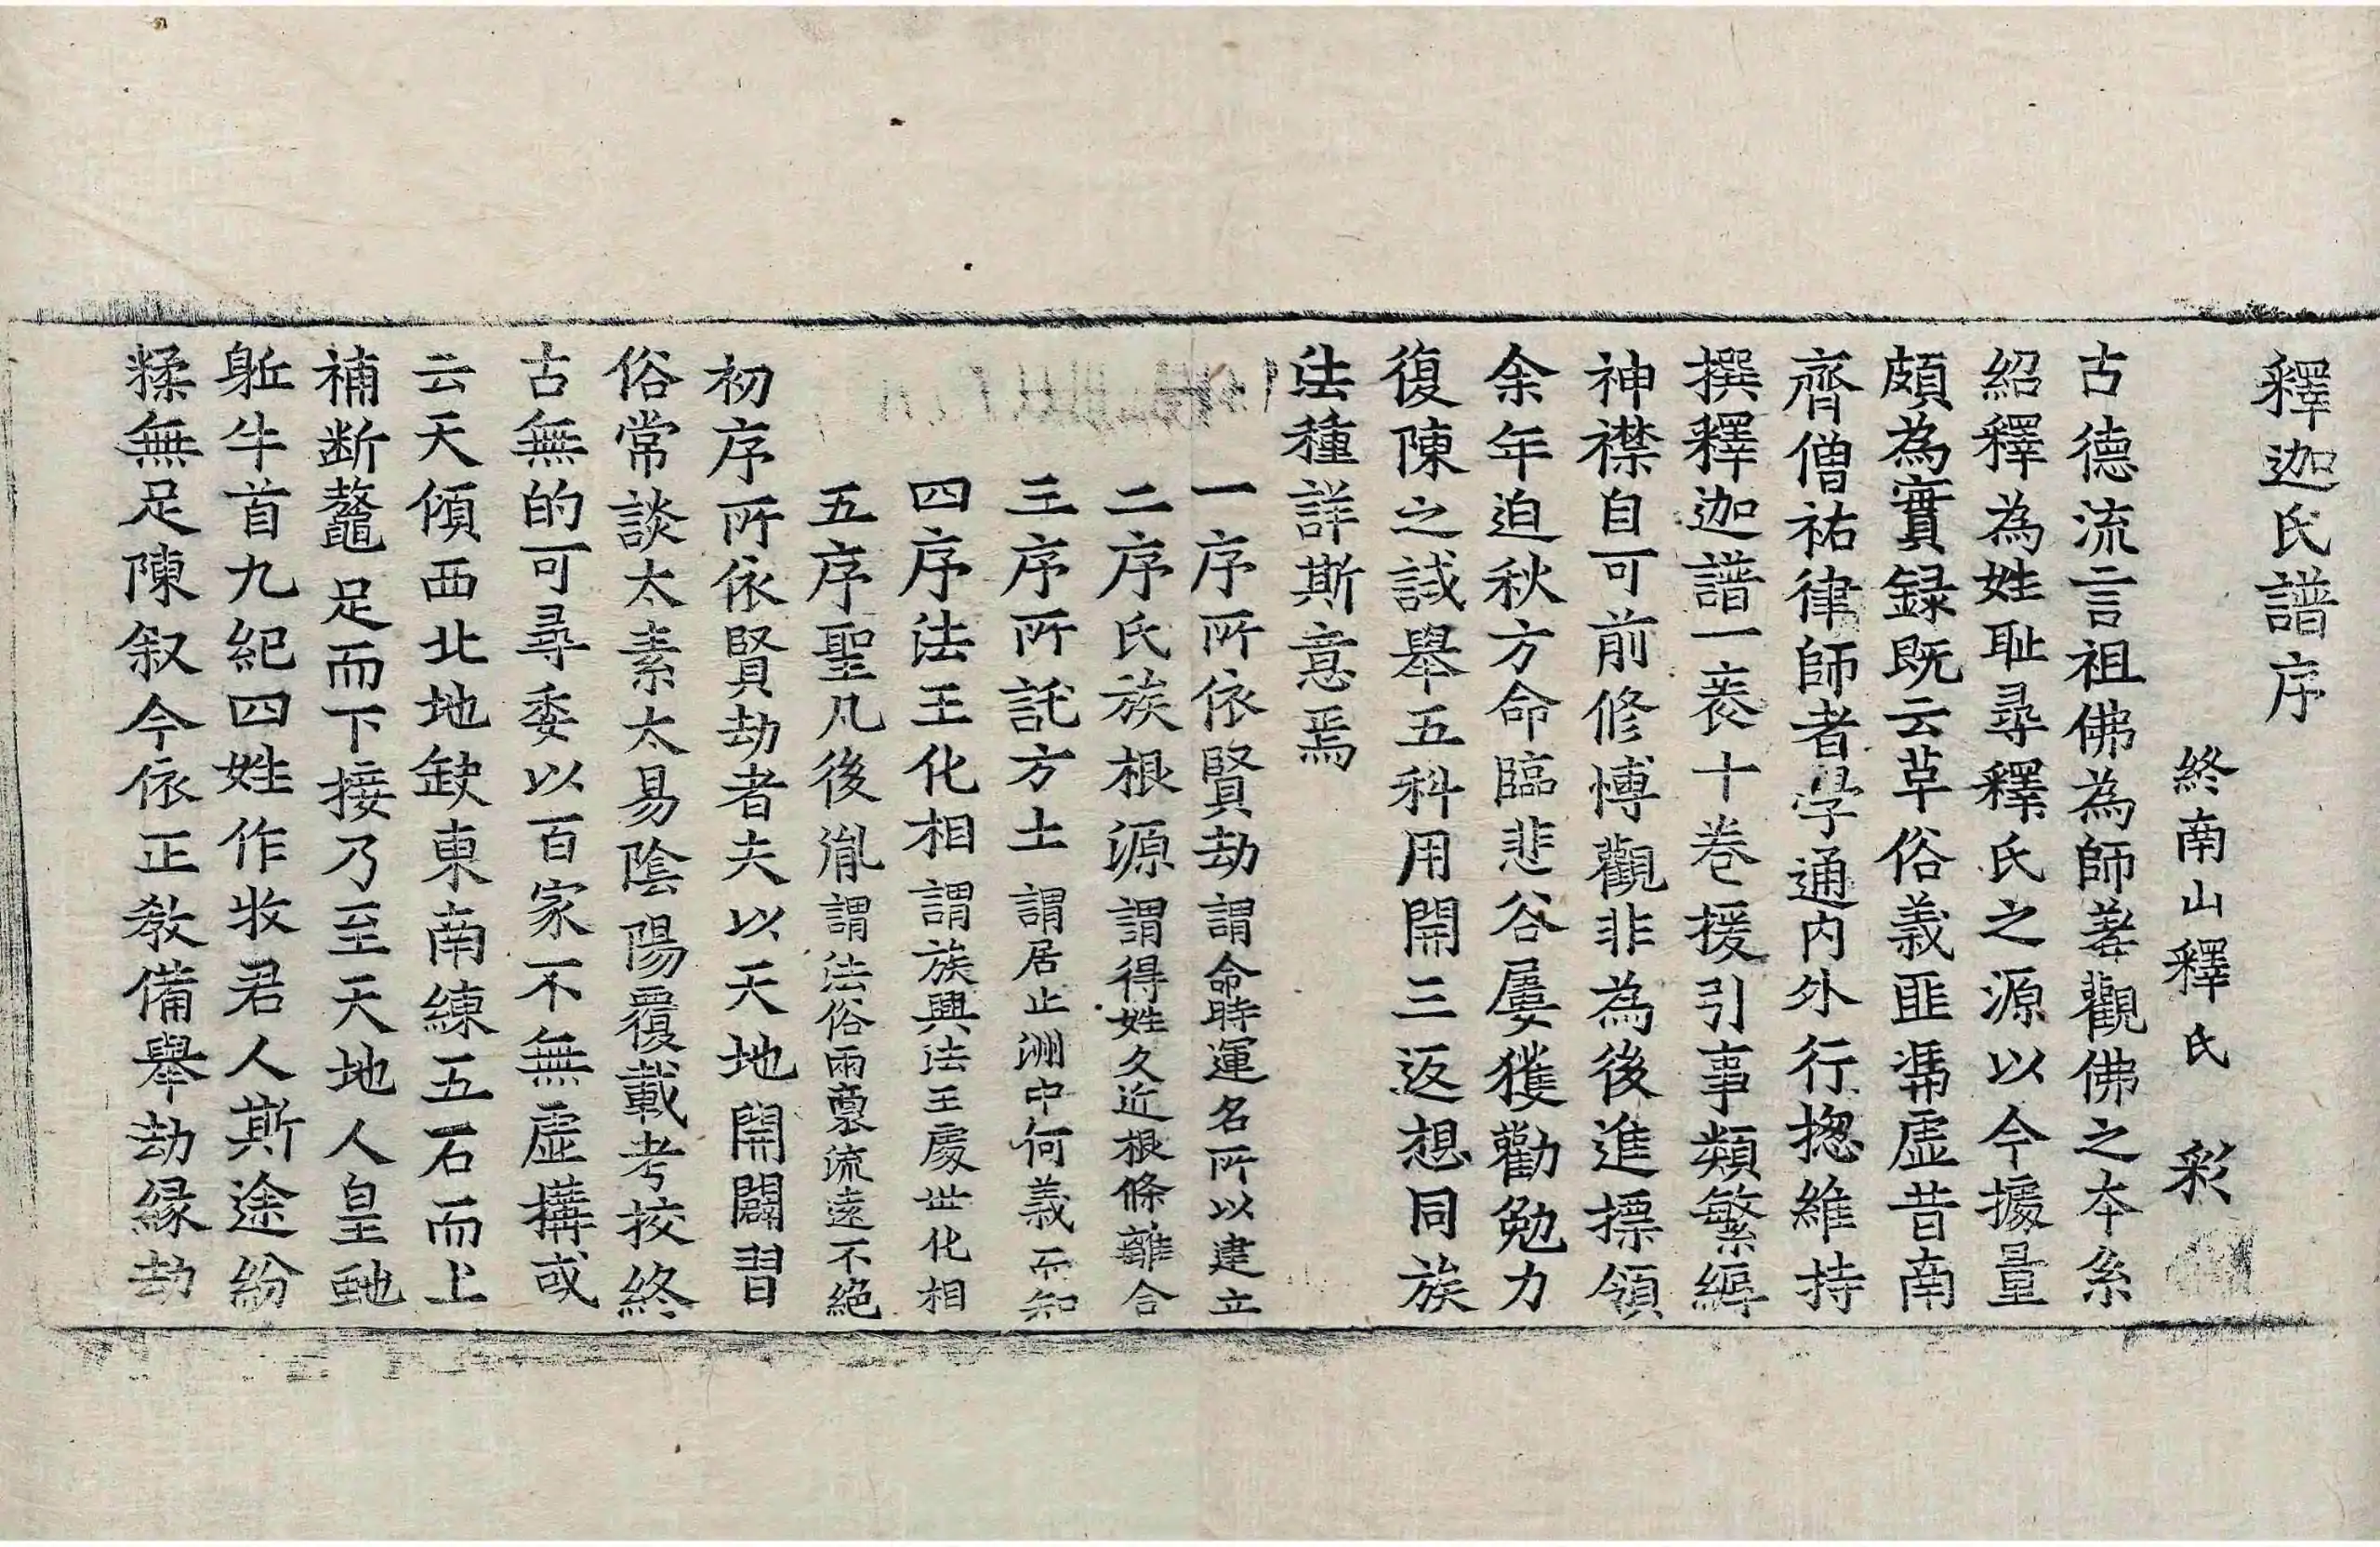 釋迦氏譜序
終南山釋氏 彩
古德流言祖佛為師羞觀佛之本系
紹釋為姓耻尋釋氏之源以今據量
頗為實録既云革俗義匪憑虛昔南
齊僧祐律師者學通内外行揔維持
撰釋迦譜一袠十卷援引事類繁縟
神襟自可前修博觀非為後進摽領
余年迫秋方命臨悲谷屢獲勸勉力
復陳之試舉五科用開三返想同族
法種詳斯意焉
一序所依賢劫謂命時運名所以建立
二序氏族根源謂得姓久近根條離合
三序所託方土謂居止洲中何義而知
四序法王化相謂族興法王處世化相
五序聖凡後胤謂法俗兩裏流遠不絶
初序所依賢劫者夫以天地開闢習
俗常談太素太易陰陽覆載考挍終
古無的可尋委以百家不無虛搆或
云天傾西北地缺東南練五石而上
補断鼇足而下接乃至天地人皇虵
躯牛首九紀四姓作收君人斯途紛
糅無足陳叙今依正教備舉劫縁劫